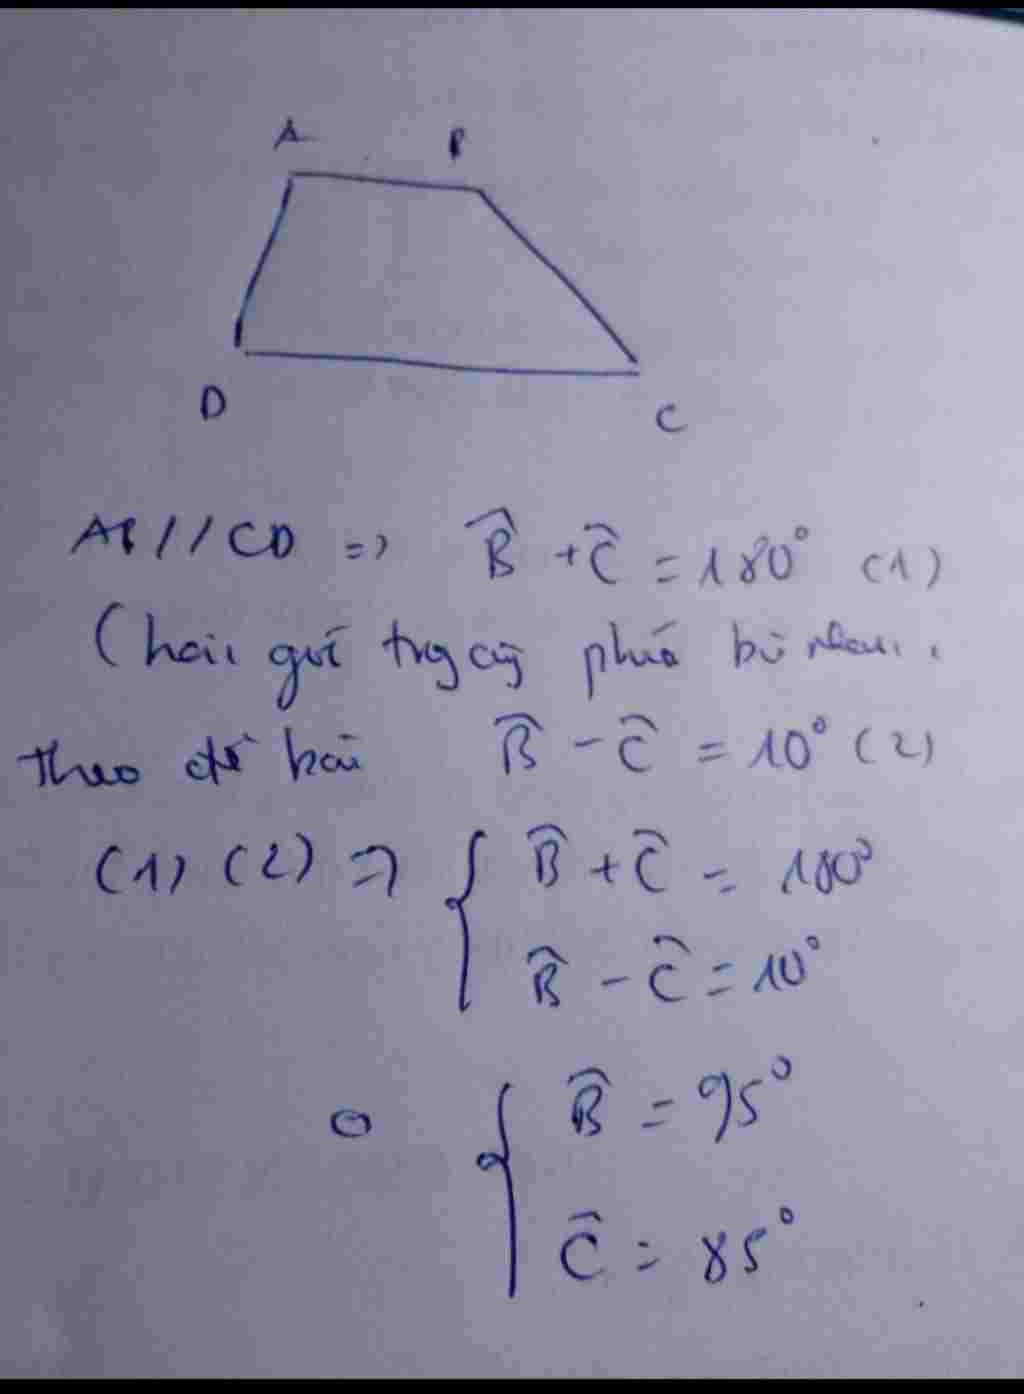 A B
D C
AB // CD => B̂ + Ĉ = 180° (1)
(hai góc trg cùg phía bù nhau.
theo đề bài B̂ - Ĉ = 10° (2)
(1) (2) => { B̂ + Ĉ = 180°
B̂ - Ĉ = 10°
{ B̂ = 95°
Ĉ = 85°